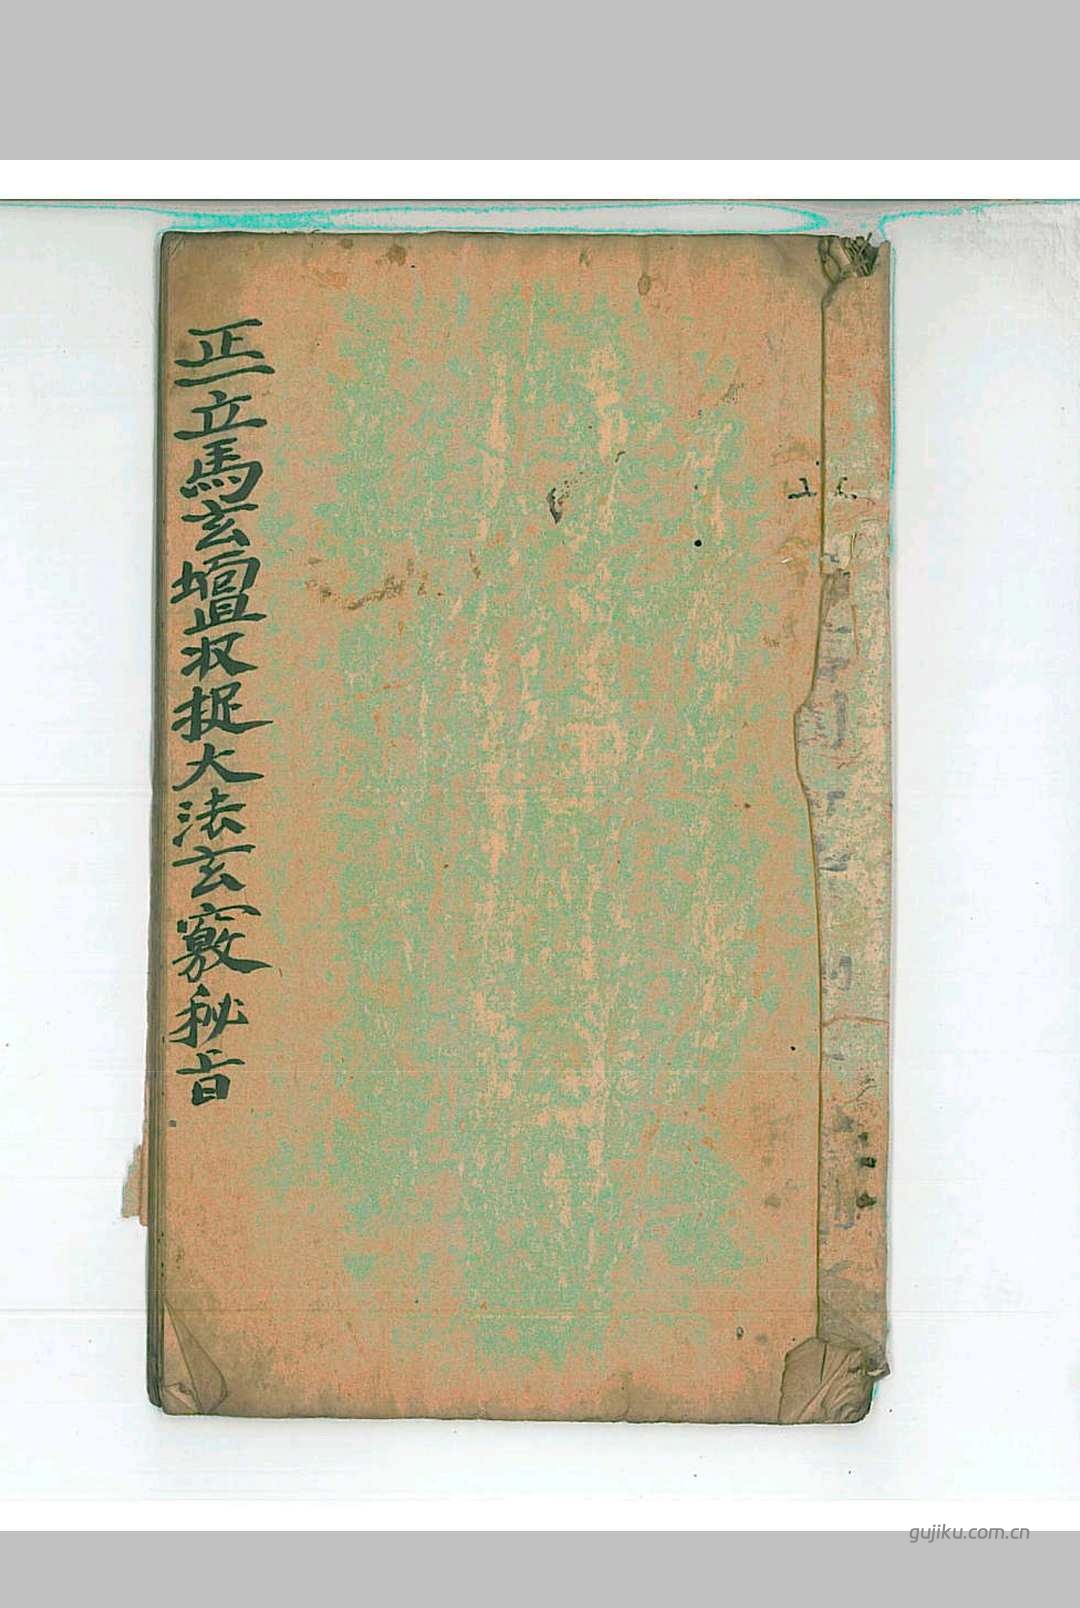 正一立馬玄壇收捉大法玄竅秘旨
gujiku.com.cn